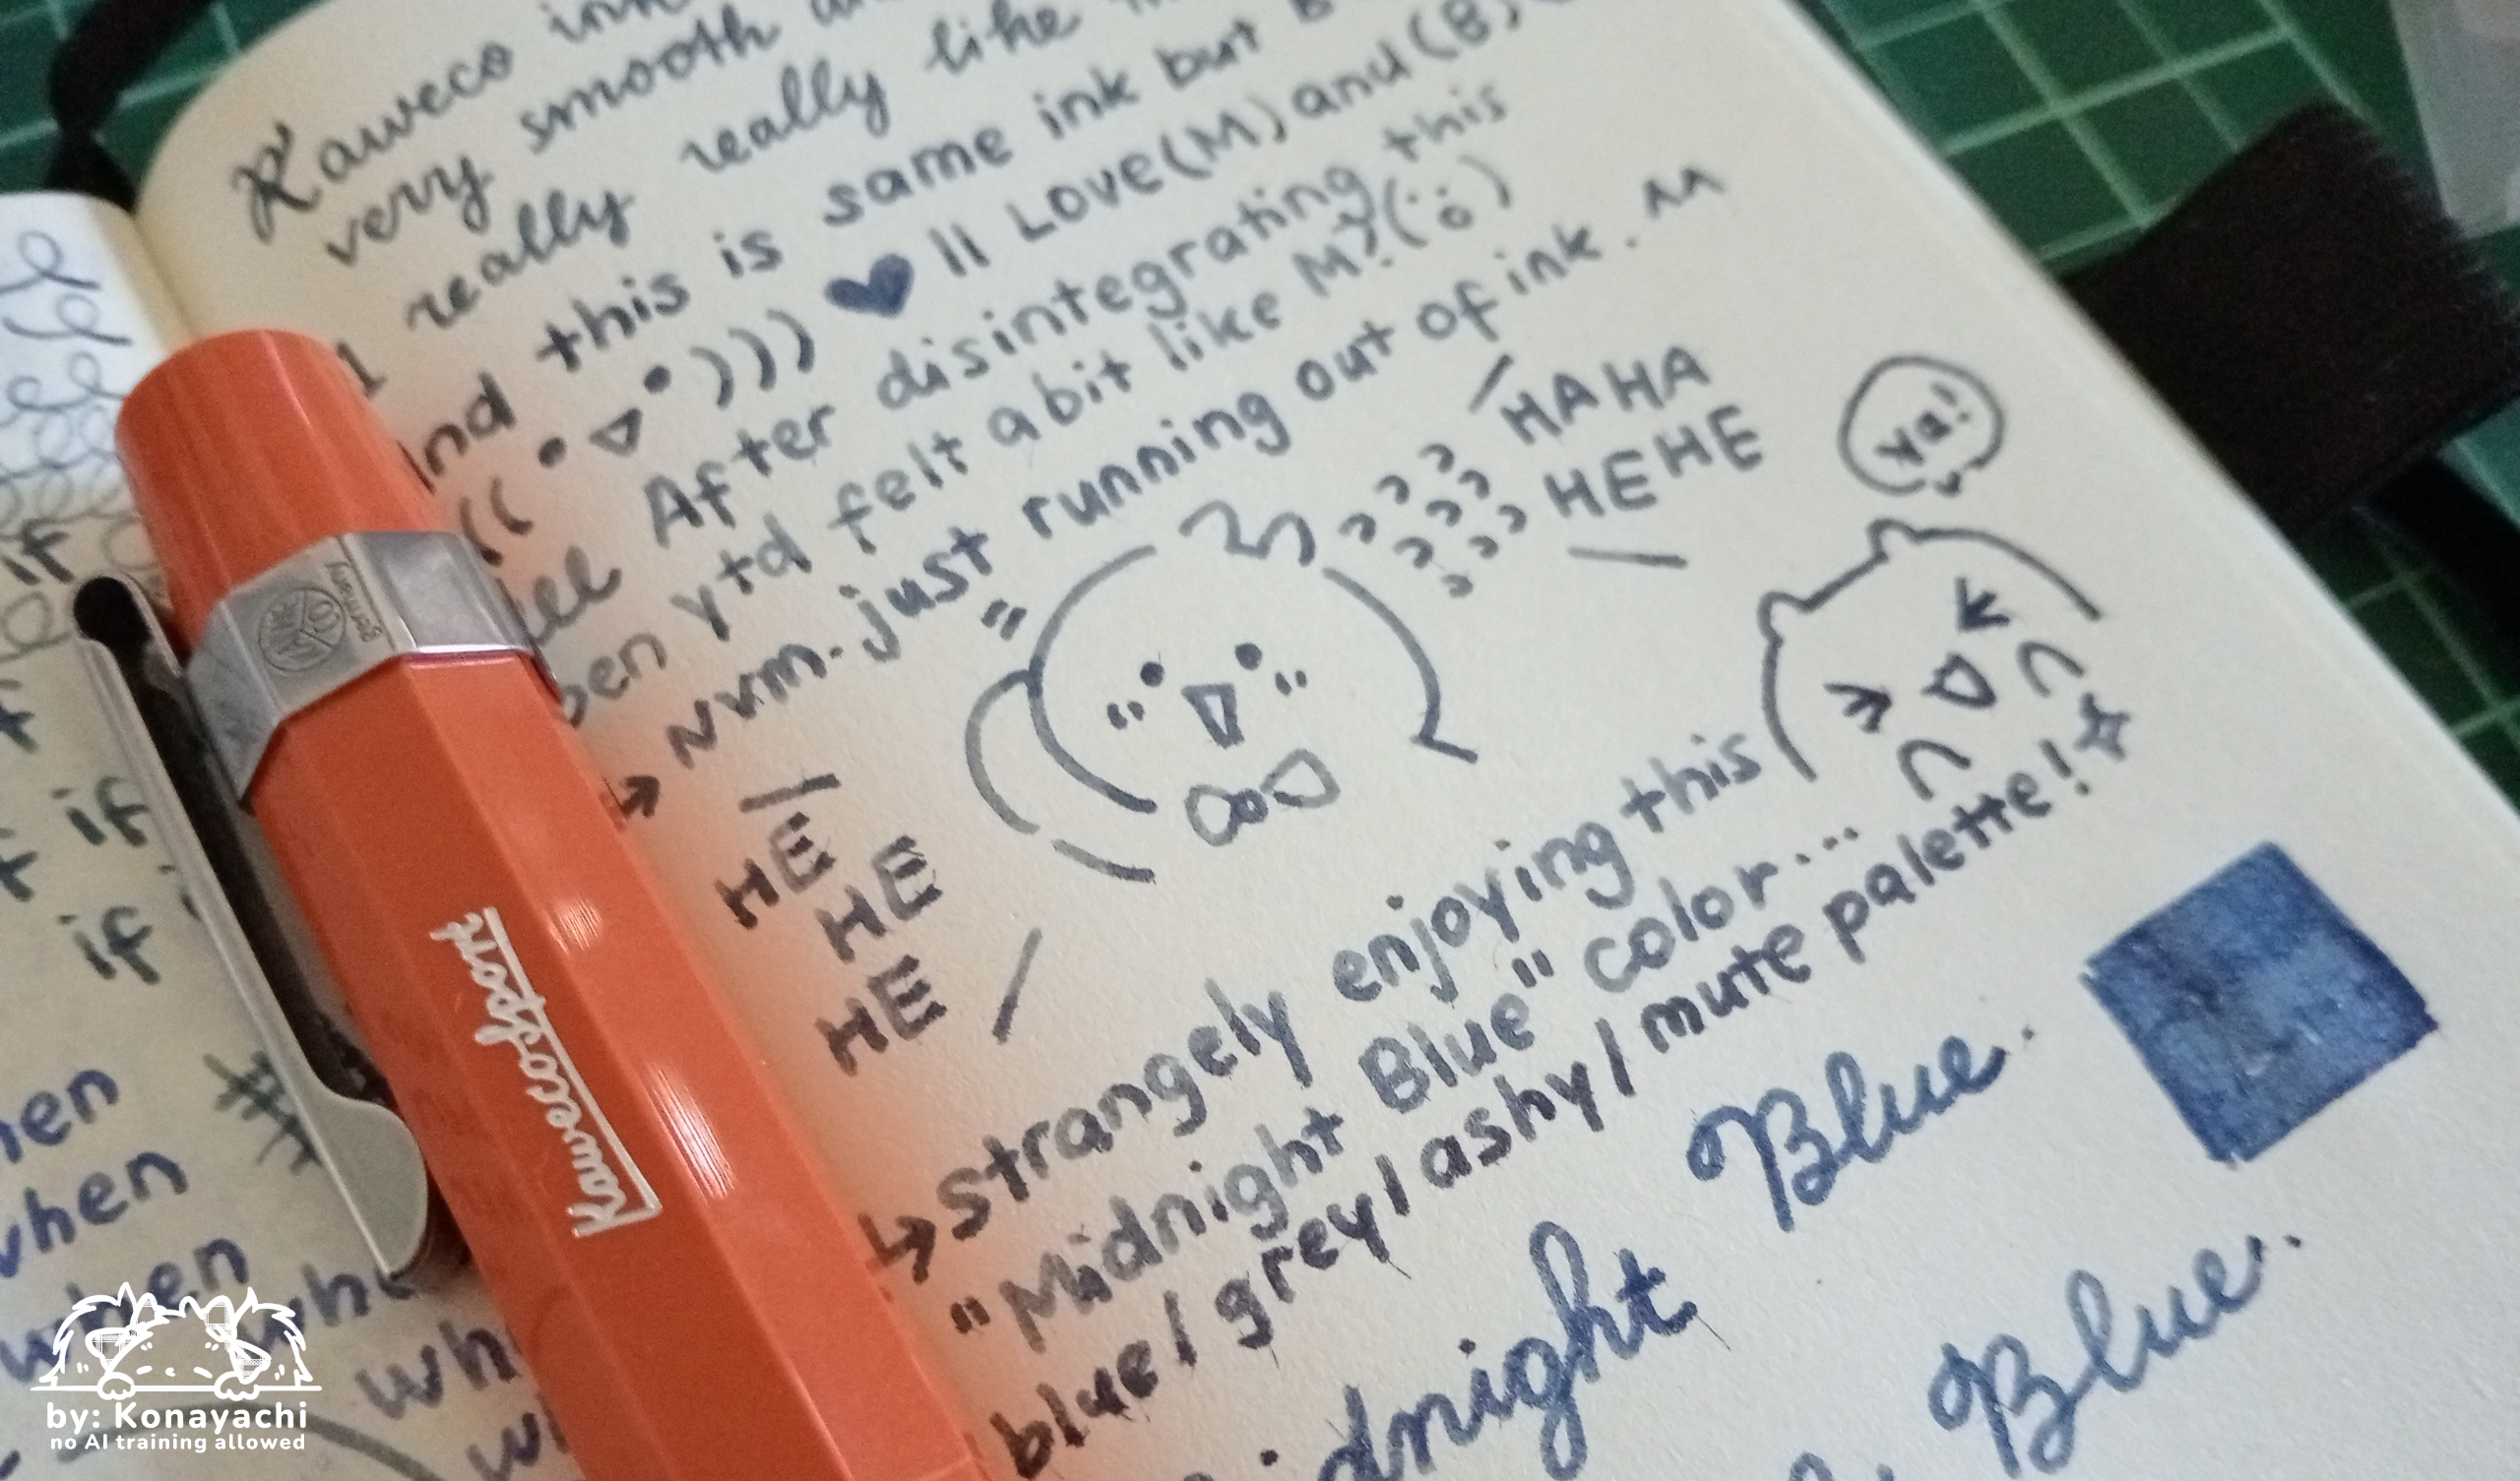 Kaweco ink
very smooth
really really like
and this is same ink but
((•▽•))) ♥ ll Love (M) and (B)
After disintegrating this
pen ytd felt a bit like M? (:o)
→ Nvm. just running out of ink. ^^
HAHA
HEHE
Ya!
HE
HE
HE
↳ strangely enjoying this
"Midnight Blue" color...
blue / grey / ashy / mute palette! ☆
Blue.
Blue.
if
if
if
when
when
when
#
Kaweco Sport
KA WE CO
Germany
by: Konayachi
no AI training allowed